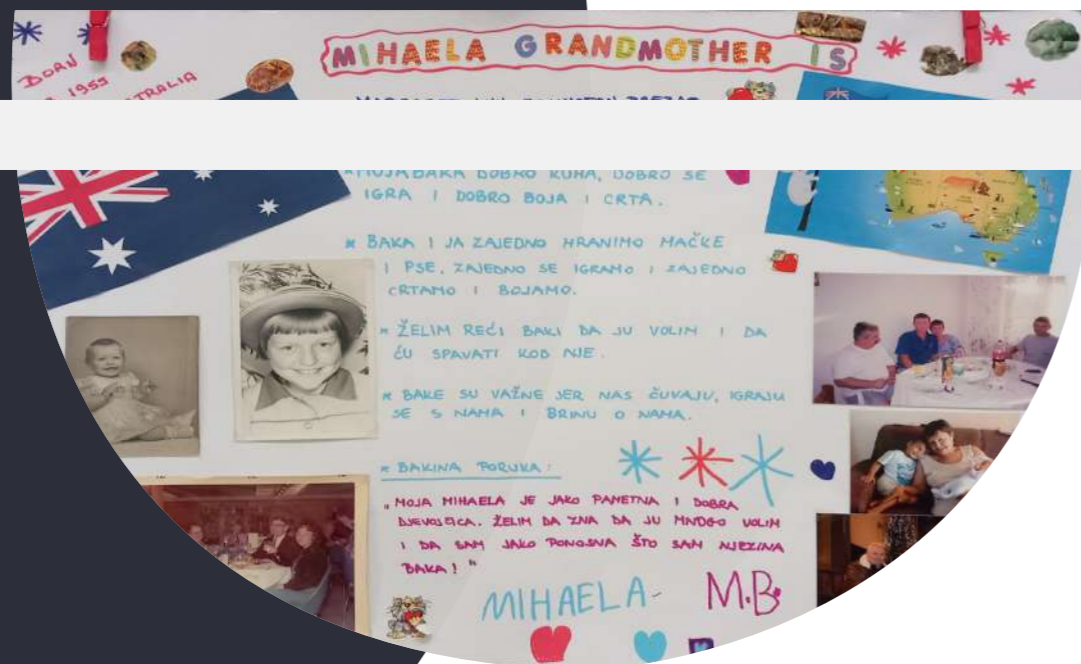 MIHAELA GRANDMOTHER IS
BORN
1953
MOJA BAKA DOBRO KUHA, DOBRO SE
IGRA I DOBRO BOJA I CRTA.
* BAKA I JA ZAJEDNO HRANIMO MAČKE
I PSE, ZAJEDNO SE IGRAMO I ZAJEDNO
CRTAMO I BOJAMO.
* ŽELIM REĆI BAKI DA JU VOLIM I DA
ĆU SPAVATI KOD NJE.
* BAKE SU VAŽNE JER NAS ČUVAJU, IGRAJU
SE S NAMA I BRINU O NAMA.
* BAKINA PORUKA:
"MOJA MIHAELA JE JAKO PAMETNA I DOBRA
DJEVOJČICA. ŽELIM DA ZNA DA JU MNOGO VOLIM
I DA SAM JAKO PONOSNA ŠTO SAM NJEZINA
BAKA!"
MIHAELA M.B.